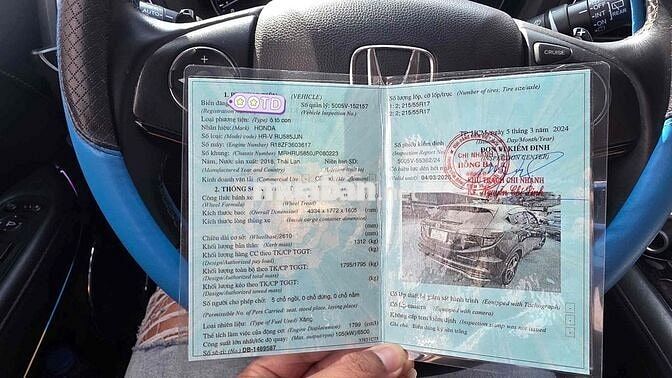 (VEHICLE)
Biển đăng
(Registration
OOTD
Số quản lý: 5005V-152157
(Vehicle Inspection No.)
Loại phương tiện: ô tô con
Nhãn hiệu: (Mark) HONDA
Số loại: (Model code) HR-V RU585JJN
(Engine Number) R18ZF3603617
Số khung: (Chassis Number) MRHRU5850JP080223
Năm, Nước sản xuất: 2018, Thái Lan Niên hạn SD:
(Manufactured Year and Country)
Kinh doanh vận tải (Commercial Use)
2. THÔNG SỐ
Công thức bánh xe:
(Wheel Formula) (Wheel Tread)
Kích thước bao: (Overall Dimension) 4334 x 1772 x 1605 (mm)
Kích thước lòng thùng xe (mm)
(Inside cargo container dimension)
Chiều dài cơ sở: (Wheelbase) 2610 (mm)
Khối lượng bản thân: (Kerb mass) 1312 (kg)
Khối lượng hàng CC theo CP TGGT: (kg)
(Design/Authorized pay load)
Khối lượng toàn bộ theo TK/CP TGGT: 1795/1795 (kg)
(Design/Authorized total mass)
Khối lượng kéo theo TK/CP TGGT: (kg)
(Design/Authorized towed mass)
Số người cho phép chở: 5 chỗ ngồi, 0 chỗ đứng, 0 chỗ nằm
(Permissible No. of Pers Carried: seat, stood place, laying place)
Loại nhiên liệu: (Type of Fuel Used) Xăng
Thể tích làm việc của động cơ: (Engine Displacement) 1799 (cm3)
Công suất lớn nhất/tốc độ quay: (Max. output/rpm) 105(kW)/6500
Số sê-ri: (No.) DB-1469587
Số lượng lốp, cỡ lốp/trục (Number of tires; Tire size/axle)
1: 2; 215/55R17
2: 2; 215/55R17
Số phiếu kiểm định
(Inspection Report No.)
5005V-55362/24
Có hiệu lực đến hết ngày
04/03/2026
ngày 5 tháng 3 năm 2024
(Issued on: Day/Month/Year)
ĐƠN VỊ KIỂM ĐỊNH
(INSPECTION CENTER)
CHI NHÁNH
PHỤ TRÁCH CHI NHÁNH
Có lắp thiết bị giám sát hành trình (Equipped with Tachograph)
(Equipped with camera)
Không cấp tem kiểm định (Inspection stamp was not issued)
Ghi chú: Biển đăng ký nền trắng
AUTO
CRUISE
OFF
INT
ON
REAR